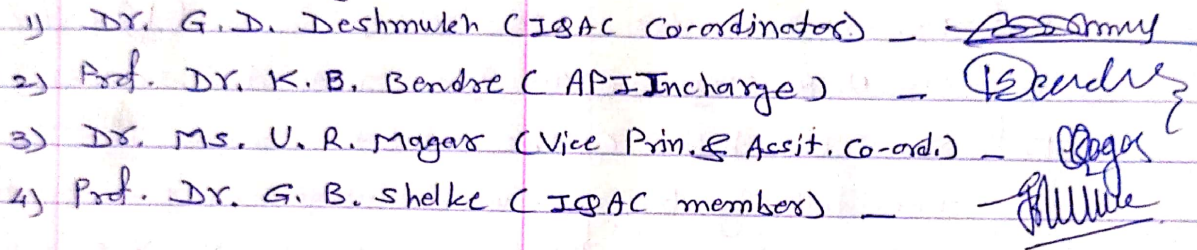 1) Dr. G. D. Deshmukh (IQAC Co-ordinator) –
2) Prof. Dr. K. B. Bendre (API Incharge) – Bendre
3) Dr. Ms. U. R. Magar (Vice Prin. & Assit. Co-ord.) –
4) Prof. Dr. G. B. Shelke (IQAC member) –